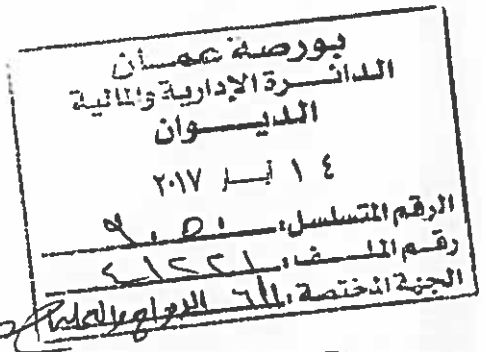 بورصة عمان
الدائرة الإدارية والمالية
الديوان
١٤ آب ٢٠١٧
الرقم المتسلسل:
رقم الملف: ٤١٢٢١
الجهة المختصة: